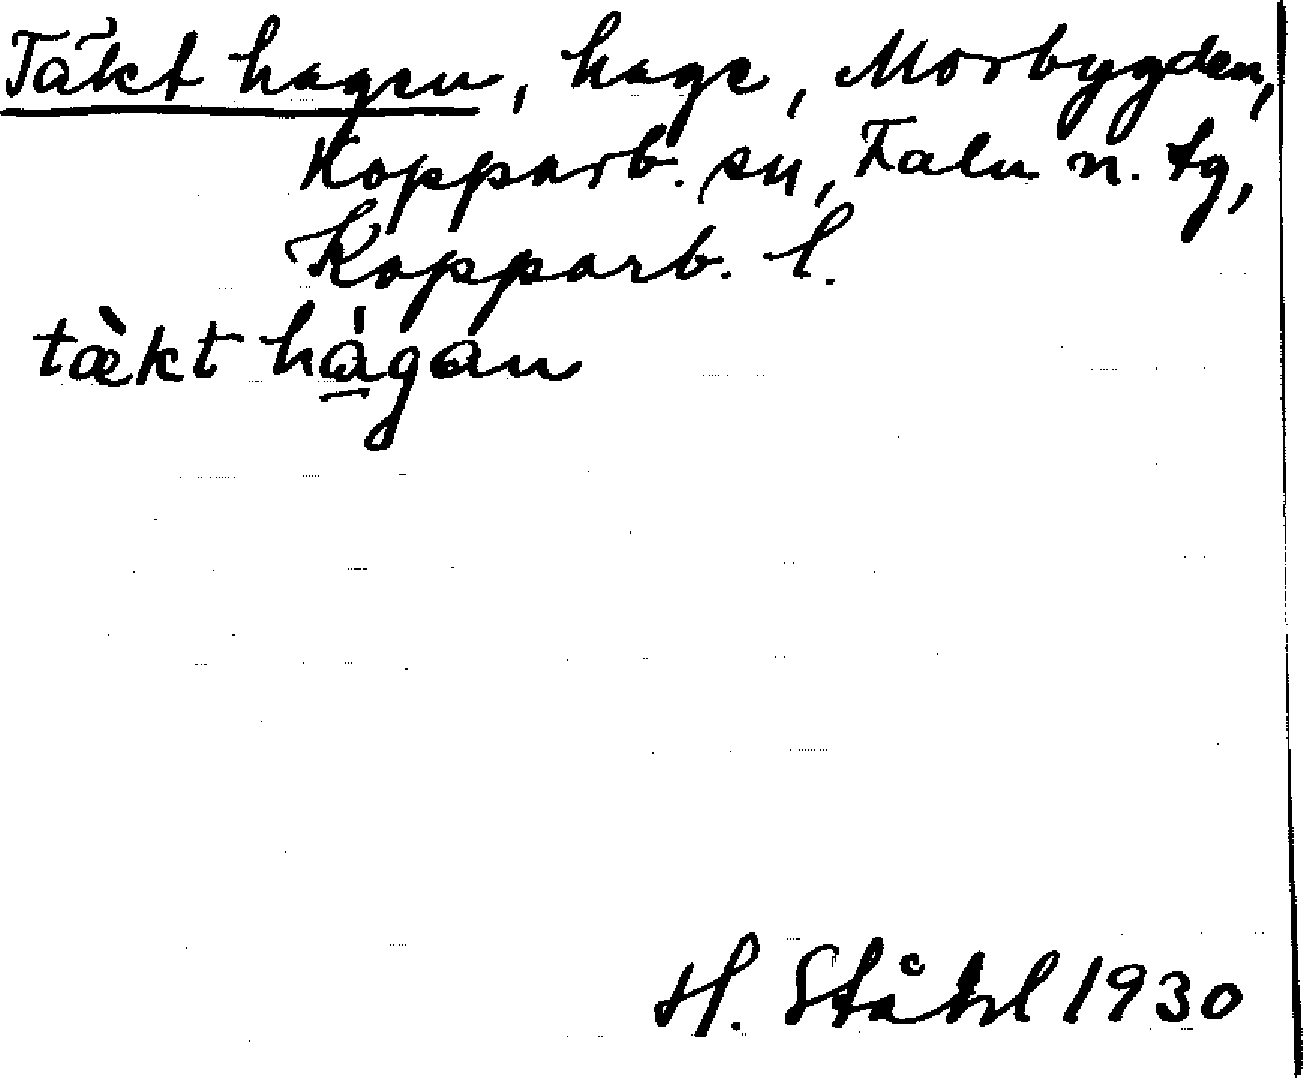 Täkt hagen, hage, Morbygden,
Kopparb. sn, Falu n. tg,
Kopparb. l.
tæ̀kt hàgan
H. Ståhl 1930